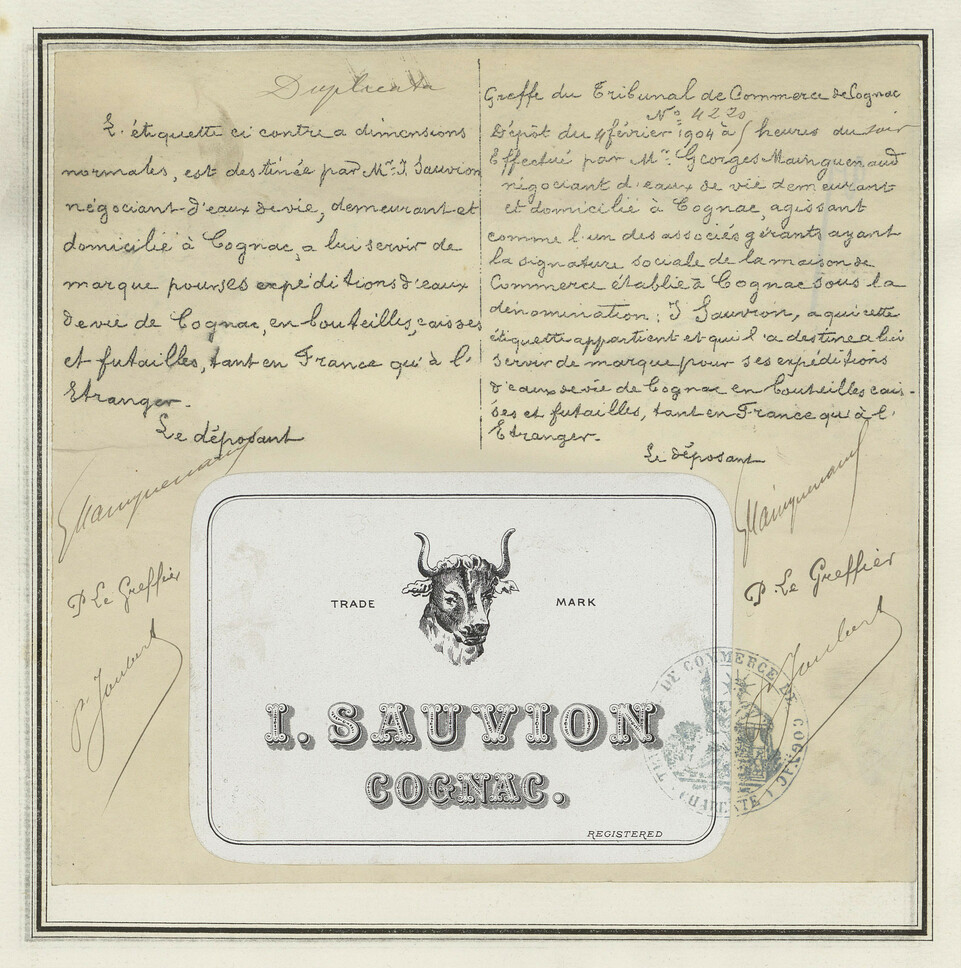 Duplicata
L'étiquette ci contre a dimensions
normales, est destinée par Mr. J. Sauvion
négociant d'eaux de vie, demeurant et
domicilié à Cognac, a lui servir de
marque pour ses expéditions d'eaux
de vie de Cognac, en bouteilles, caisses
et futailles, tant en France qu'à l'
Etranger.
Le déposant
GMainguenaud
P. Le Greffier
P. Joubert
Greffe du Tribunal de Commerce de Cognac
No. 4220
Dépôt du 4 février 1904 à heures du soir
Effectué par Mr. Georges Mainguenaud
négociant d'eaux de vie demeurant
et domicilié à Cognac, agissant
comme l'un des associés gérants ayant
la signature sociale de la maison de
Commerce établie à Cognac sous la
dénomination: J Sauvion, a qui cette
étiquette appartient et qui l'a destine a lui
servir de marque pour ses expéditions
d'eaux de vie de Cognac en bouteilles cais-
ses et futailles, tant en France qu'à l'
Etranger.
Le déposant
GMainguenaud
P. Le Greffier
P. Joubert
TRADE MARK
I. SAUVION
COGNAC.
REGISTERED
DE COMMERCE DE COGNAC
CHARENTE